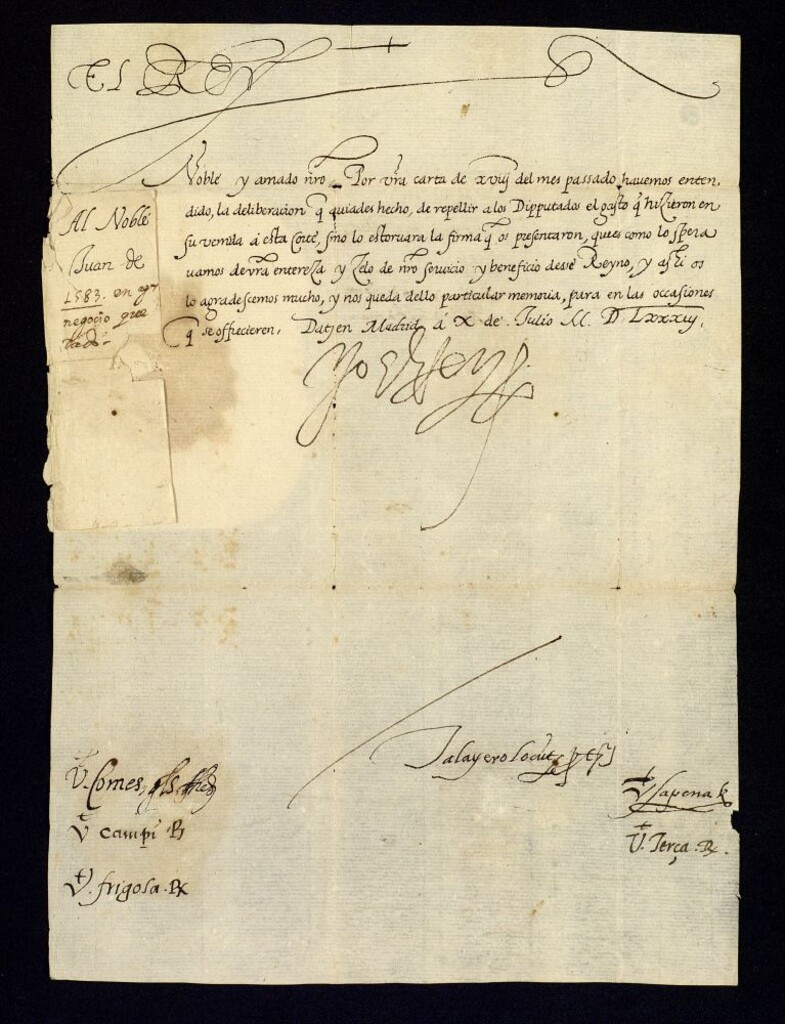 El Rey
Noble y amado nr̃o. Por vr̃a carta de xviij del mes passado, havemos enten,
dido, la deliberacion q̃ quiades hecho, de repellir a los Dipputados el gasto q̃ hizieron en
su venida á esta Corte, sino lo estorvara la firma q̃ os presentaron, que es como lo spera
vamos de vr̃a entereza y Zelo de nr̃o servicio y beneficio desse Reyno, y assi os
lo agradescemos mucho, y nos queda dello particular memoria, para en las occasiones
q̃ se offrecieren, Dat en Madrid á X de Julio M. D LXXXiij.
Yo el Rey
Al Noble
Juan de
1583. en
negocio
V. Comes,
V. Campi R
V. frigola. R
Talayero
V. Sapena R
V. Terça. R.